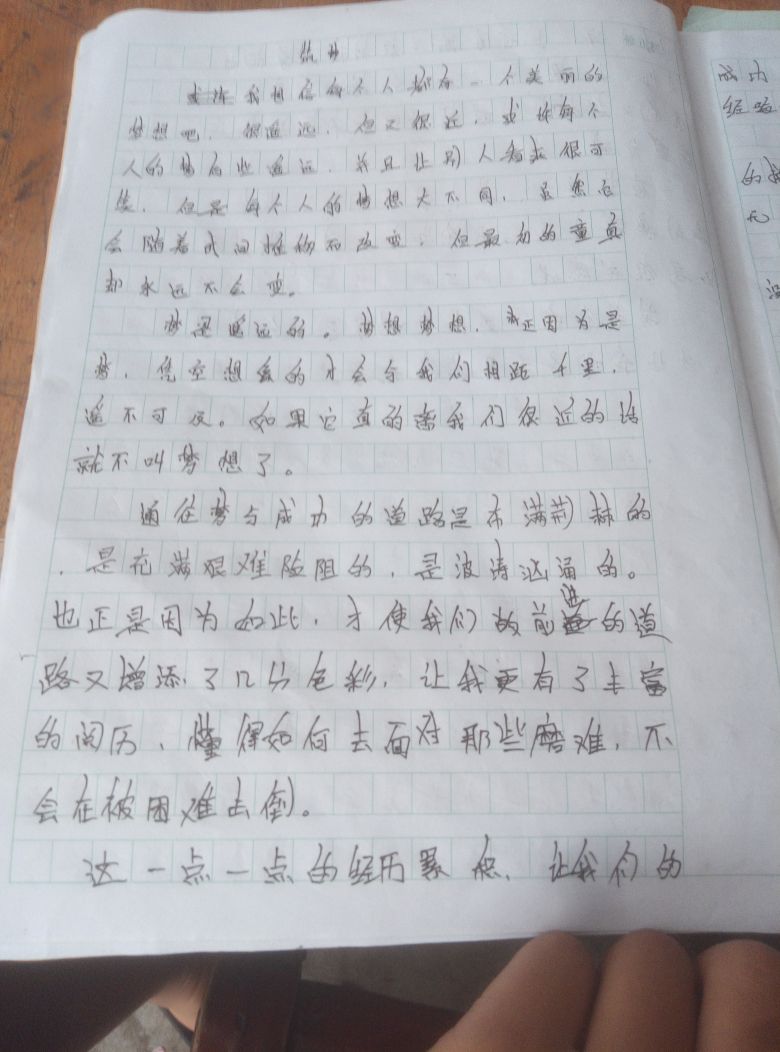 我相信每个人都有一个美丽的
梦想吧,很遥远,但又很近,或许每个
人的梦有些遥远,并且让别人看来很可
笑,但是每个人的梦想大不同,虽然它
会随着时间推移而改变,但最初的童真
却永远不会变。
梦是遥远的。梦想梦想,正因为是
梦,凭空想象的才会与我们相距千里,
遥不可及。如果它真的离我们很近的话
就不叫梦想了。
通往梦与成功的道路是布满荆棘的
,是充满艰难险阻的,是波涛汹涌的。
也正是因为如此,才使我们的前进的道
路又增添了几分色彩,让我更有了丰富
的阅历,懂得如何去面对那些磨难,不
会在被困难击倒。
这一点一点的经历累积,让我们的
成功
经验
的
无